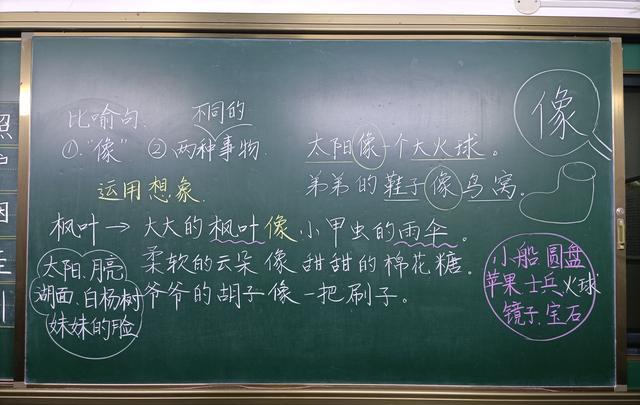 比喻句. 不同的
①“像” ②两种事物
运用想象.
太阳像一个大火球。
弟弟的鞋子像鸟窝。
像
枫叶→大大的枫叶像小甲虫的雨伞。
柔软的云朵像甜甜的棉花糖.
爷爷的胡子像一把刷子。
太阳.月亮
湖面.白杨树
妹妹的脸
小船 圆盘
苹果 士兵 火球
镜子.宝石